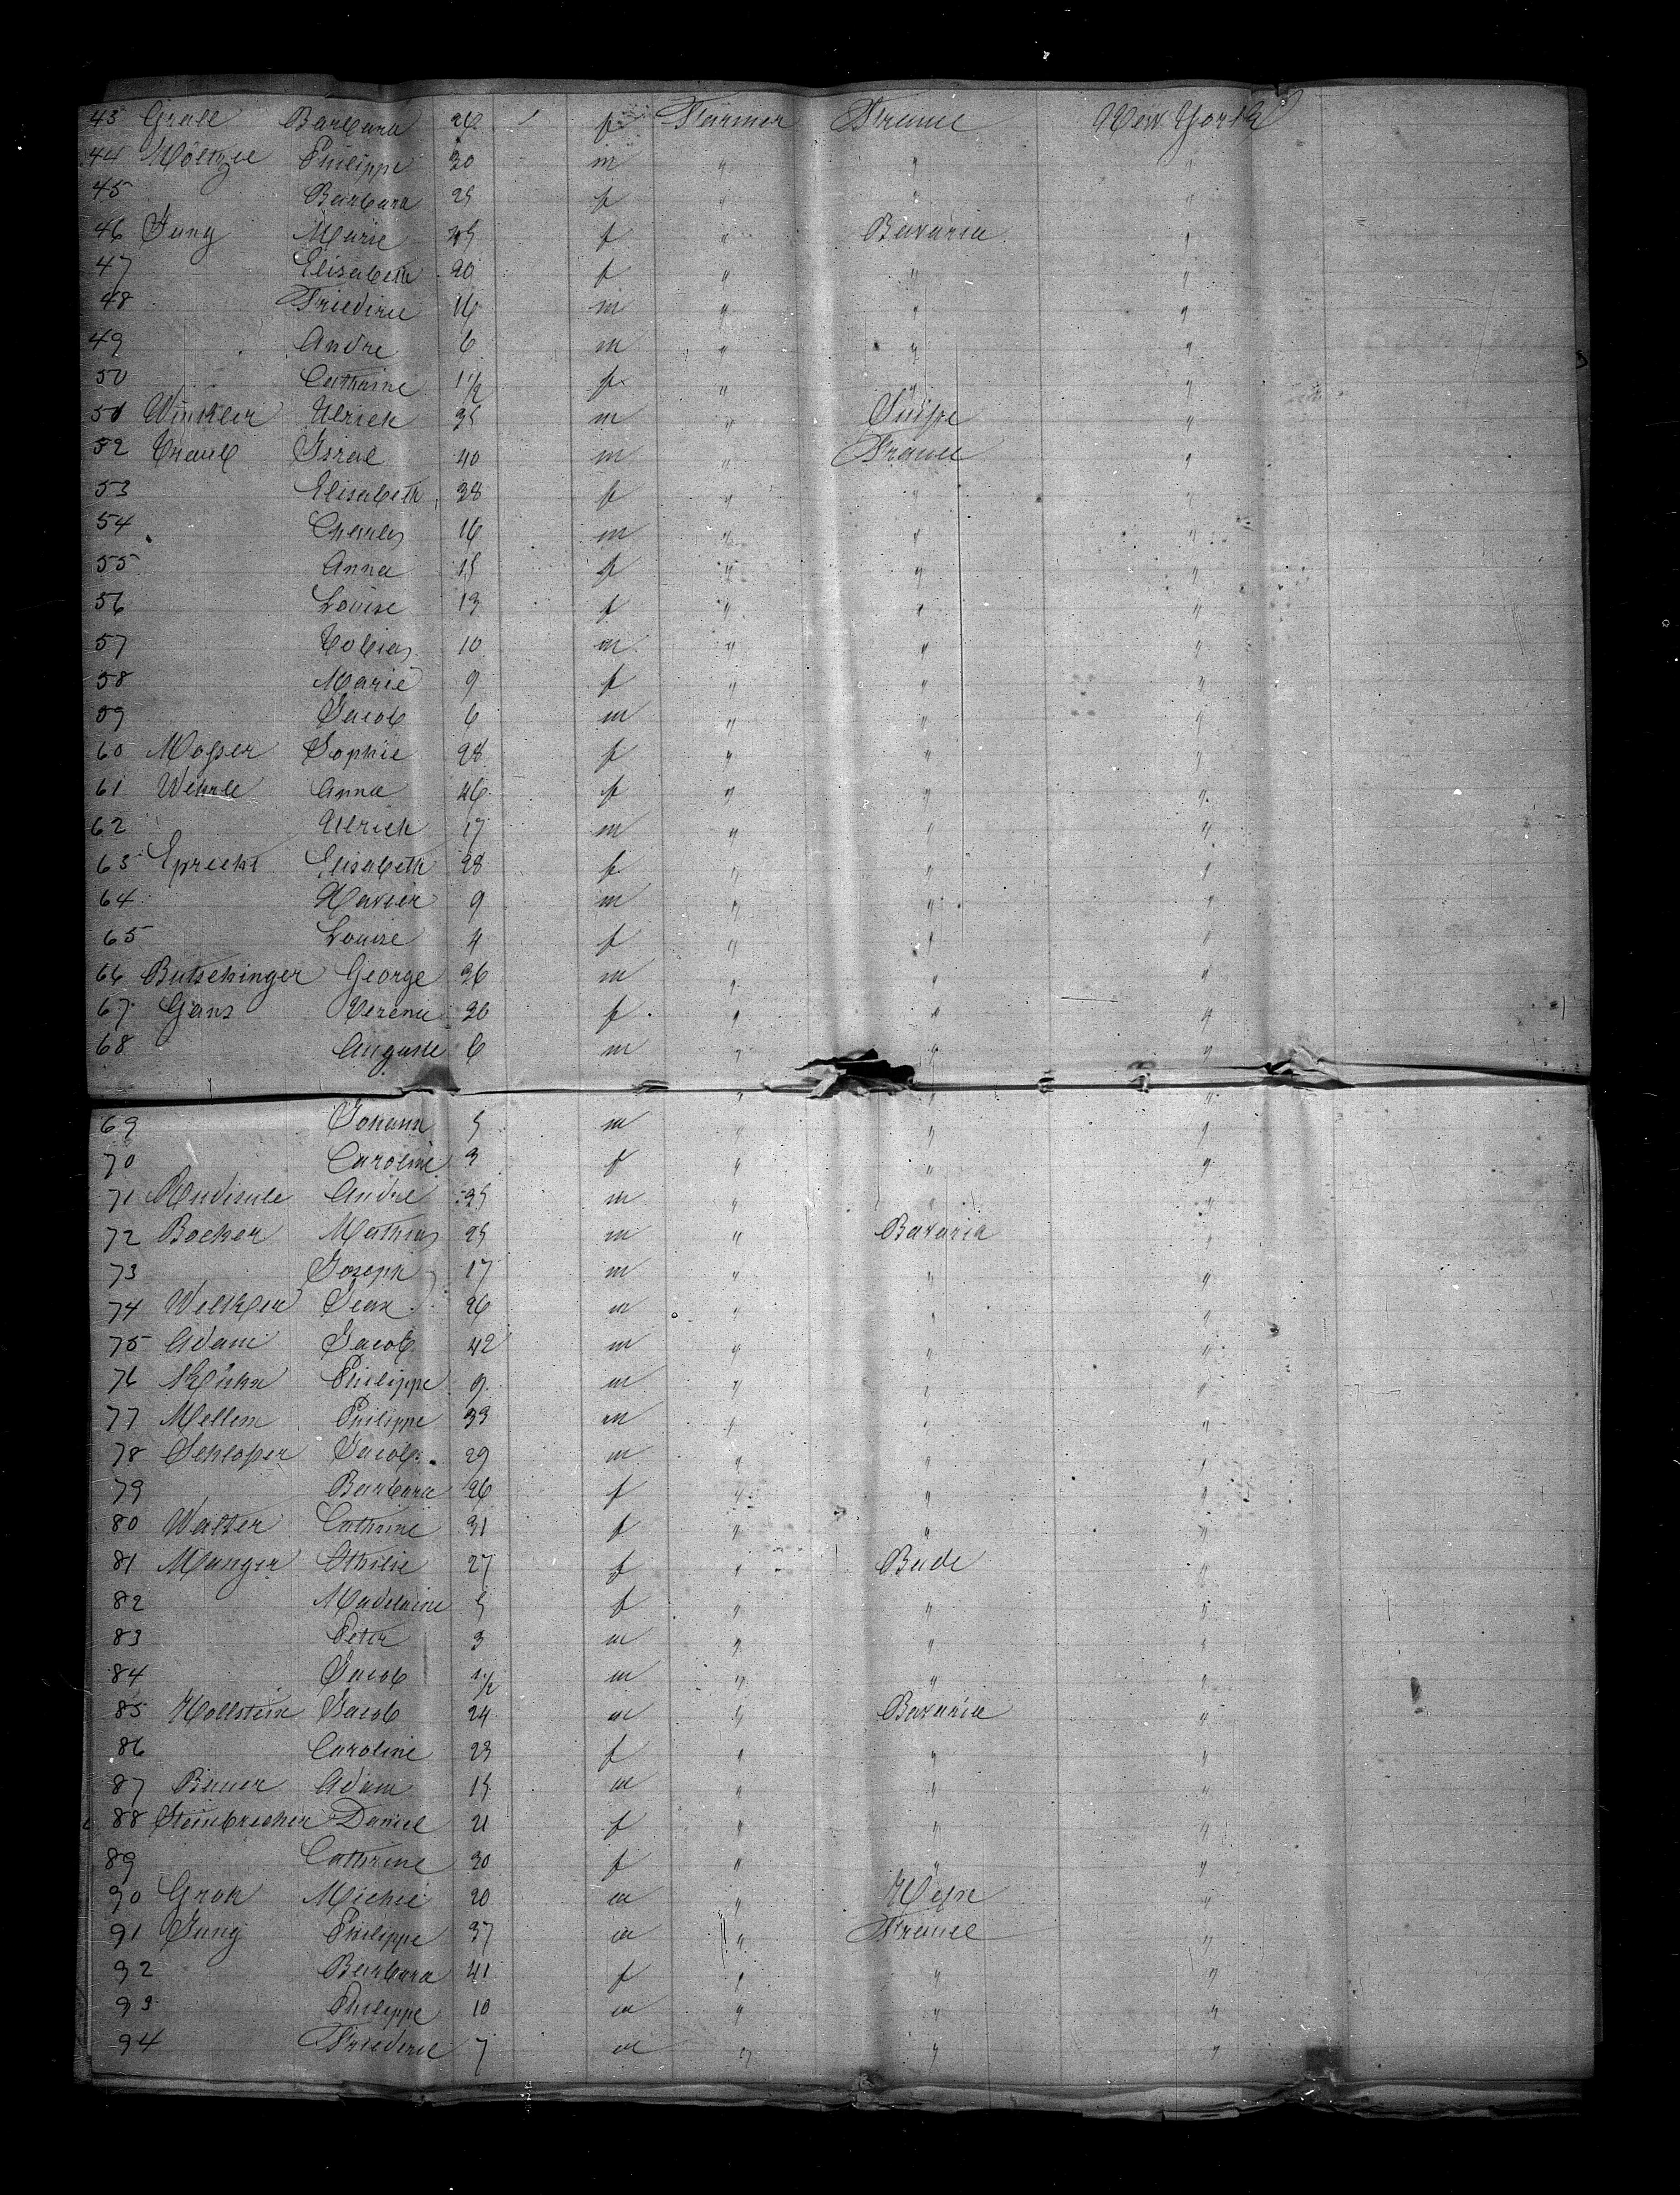 43 Grall Barbara 26 f Farmer France New York
44 Philippe 30 m " " "
45 Barbara 25 f " " "
46 Jung Marie 45 f " Bavaria "
47 Elisabeth 20 f " " "
48 Friedric 16 m " " "
49 Andre 6 m " " "
50 Cathrine 1 1/2 f " " "
51 Winkler Ulrich 35 m " Suisse "
52 Traub Israel 40 m " France "
53 Elisabeth 38 f " " "
54 Charles 16 m " " "
55 Anna 15 f " " "
56 Louise 13 f " " "
57 Tobias 10 m " " "
58 Marie 9 f " " "
59 Jacob 6 m " " "
60 Mosser Sophie 28 f " " "
61 Wehrle Anna 46 f " " "
62 Ullrich 17 m " " "
63 Eprecht Elisabeth 28 f " " "
64 Xavier 9 m " " "
65 Louise 4 f " " "
66 Butschinger George 36 m " " "
67 Gans Verena f " " "
68 Auguste 6 m " " "
69 Johann 5 m " " "
70 Caroline 3 f " " "
71 Andre 35 m " " "
72 Becker Mathias 25 m " Bavaria "
73 Joseph 17 m " " "
74 Welker Jean 26 m " " "
75 Adam Jacob 42 m " " "
76 Kühn Philippe 9 m " " "
77 Mellem Philippe 33 m " " "
78 Schlosser Jacob 29 m " " "
79 Barbara 26 f " " "
80 Walter Cathrine 31 f " " "
81 Manger Othilie 27 f " Bade "
82 Madelaine 5 f " " "
83 Peter 3 m " " "
84 Jacob 1/2 m " " "
85 Hollstein Jacob 24 m " Bavaria "
86 Caroline 23 f " " "
87 Bauer Adam 15 m " " "
88 Steinbrecher Daniel 21 f " " "
89 Cathrine 30 f " " "
90 Groh Michel 20 m " Hesse "
91 Jung Philippe 37 m " France "
92 Barbara 41 f " " "
93 Philippe 10 m " " "
94 Friedric 7 m " " "